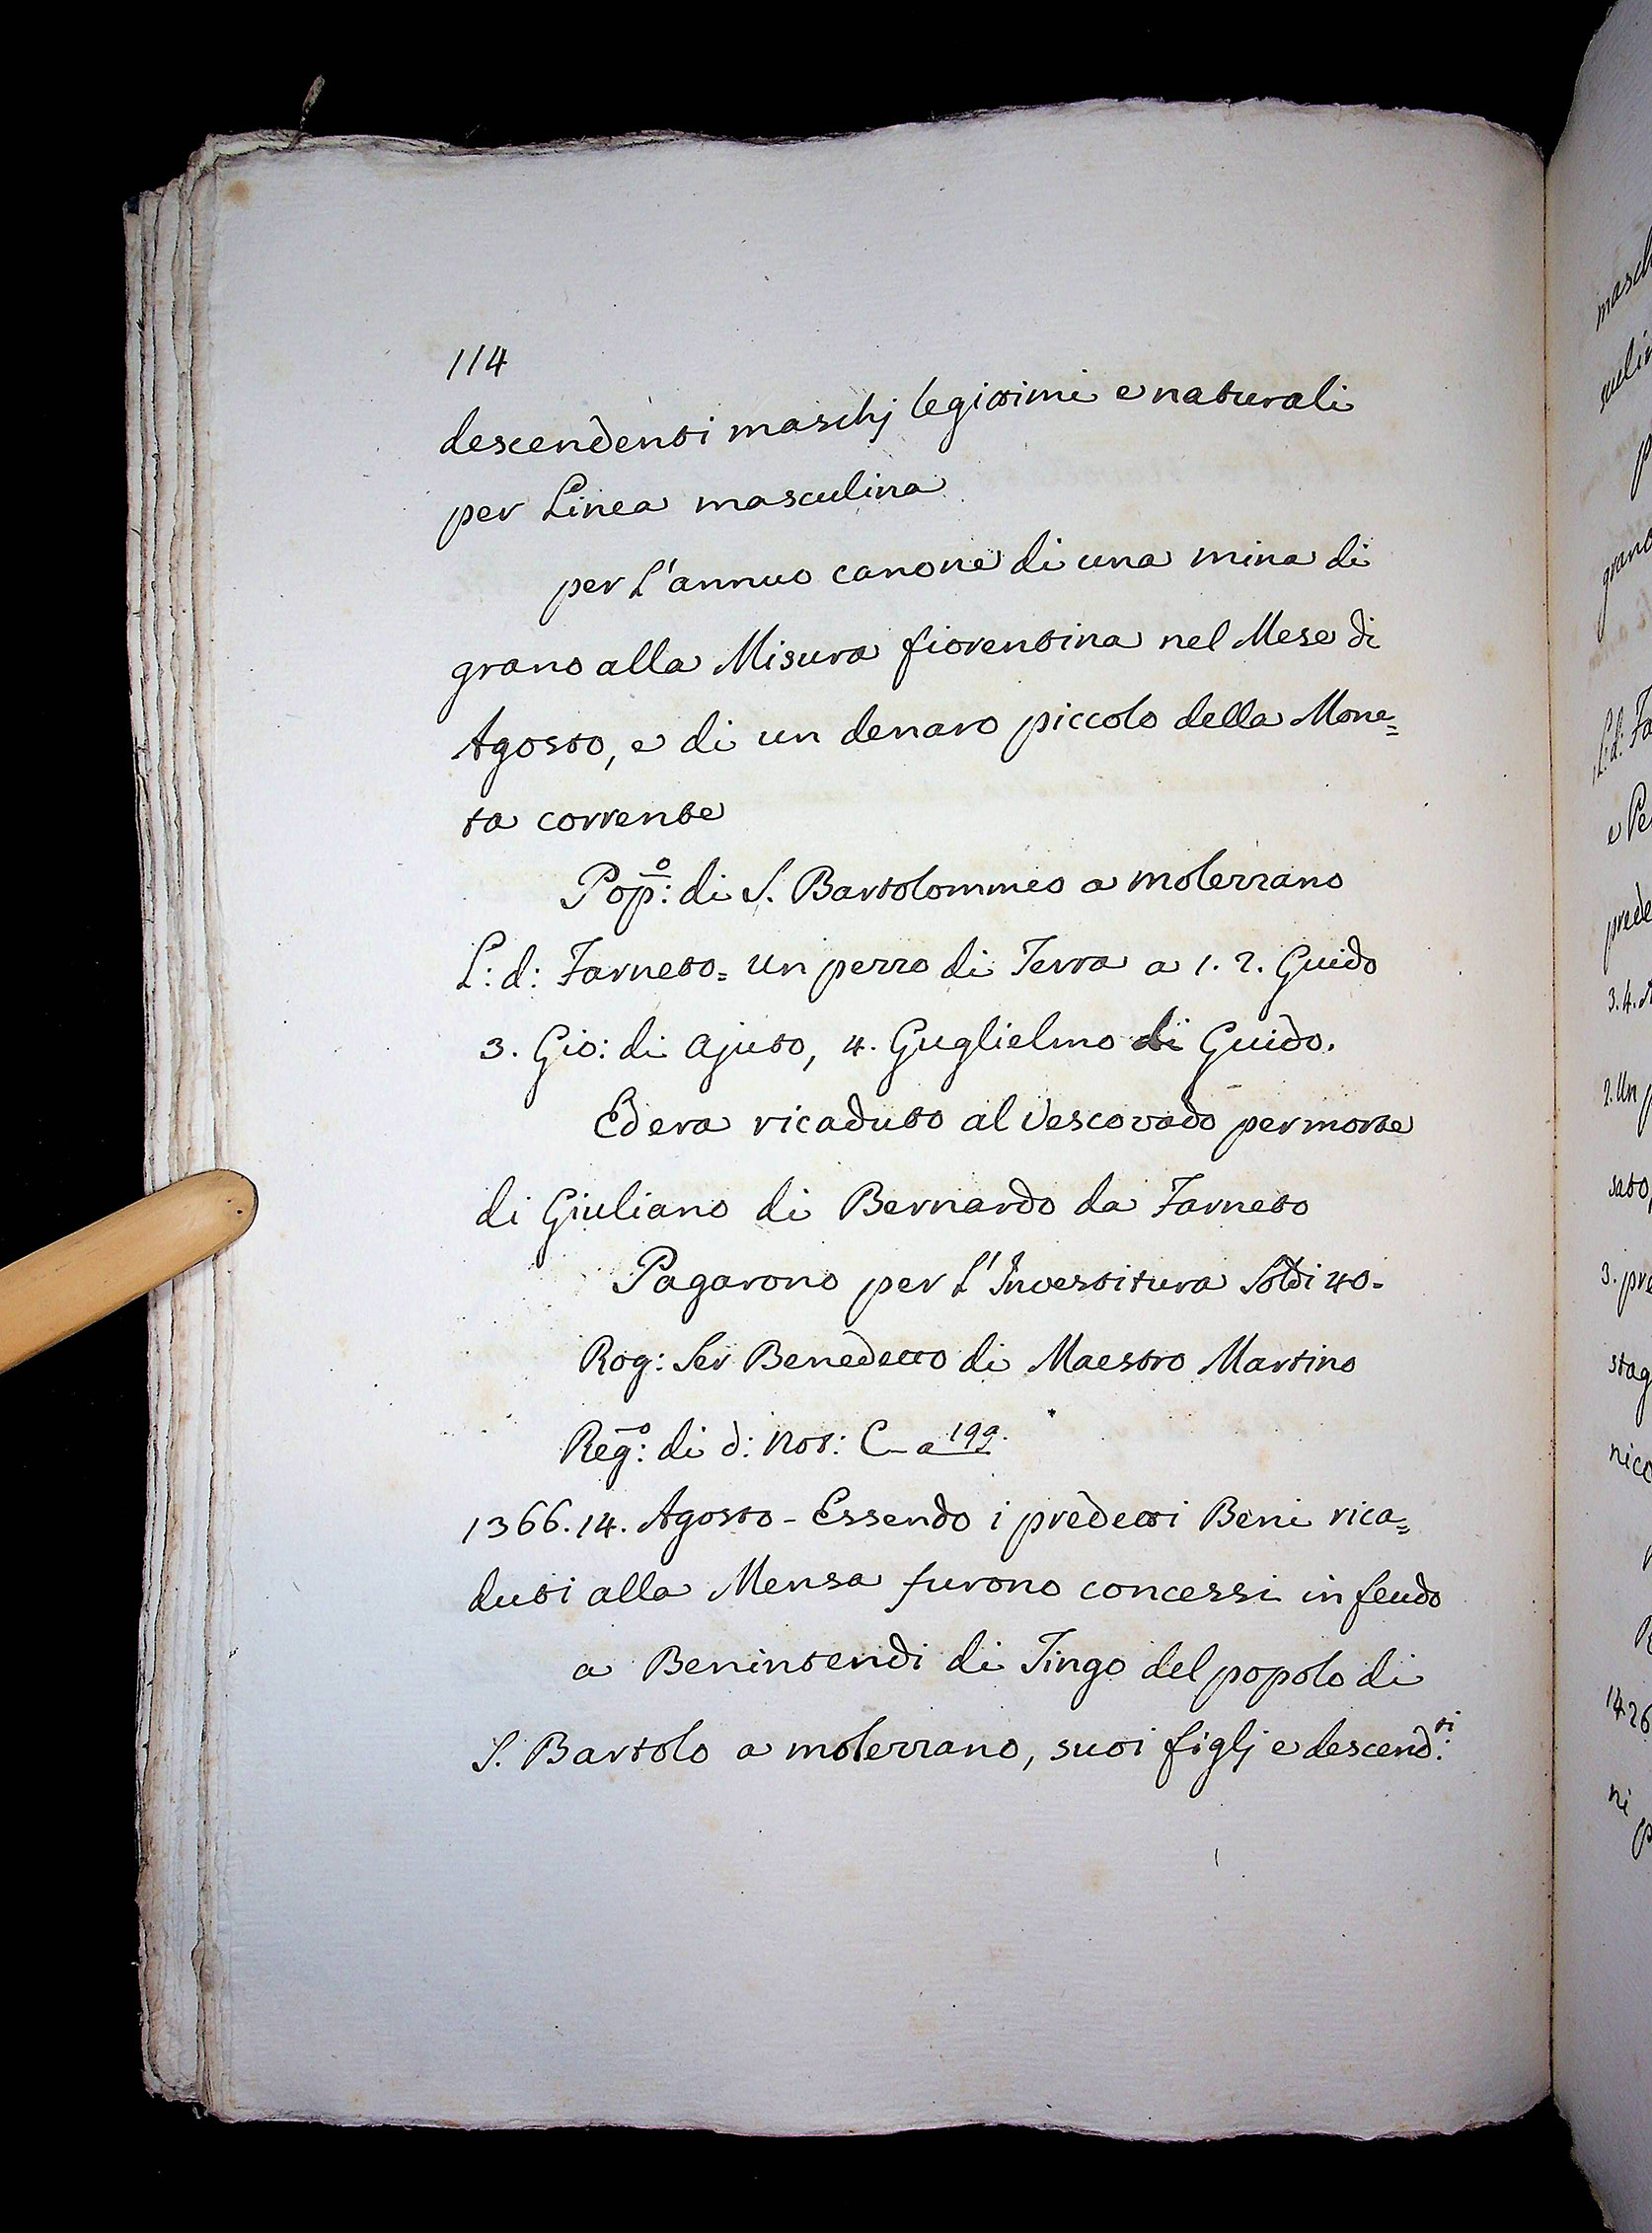 114
descendenti maschj legittimi e naturali
per Linea masculina
per L'annuo canone di una mina di
grano alla Misura fiorentina nel Mese di
Agosto, e di un denaro piccolo della Mone=
ta corrente
Pop.º: di S. Bartolommeo a molezzano
L: d: Farneto= un pezzo di Terra a 1. 2. Guido
3. Gio: di Ajuto, 4. Guglielmo di Guido.
Ed era ricaduto al Vescovado per morte
di Giuliano di Bernardo da Farneto
Pagarono per L'Investitura Soldi 40-
Rog: Ser Benedetto di Maestro Martino
Reg.º: di d: Not: C- a 199.
1366. 14. Agosto - Essendo i predetti Beni rica=
duti alla Mensa furono concessi in feudo
a Benintendi di Tingo del popolo di
S. Bartolo a molezzano, suoi figlj e descend.ti:
masch
P
grano
L: d: Fa
e Pe
prede
3. 4.
2. Un p
sato,
3. pre
stag
nico
1426
ni